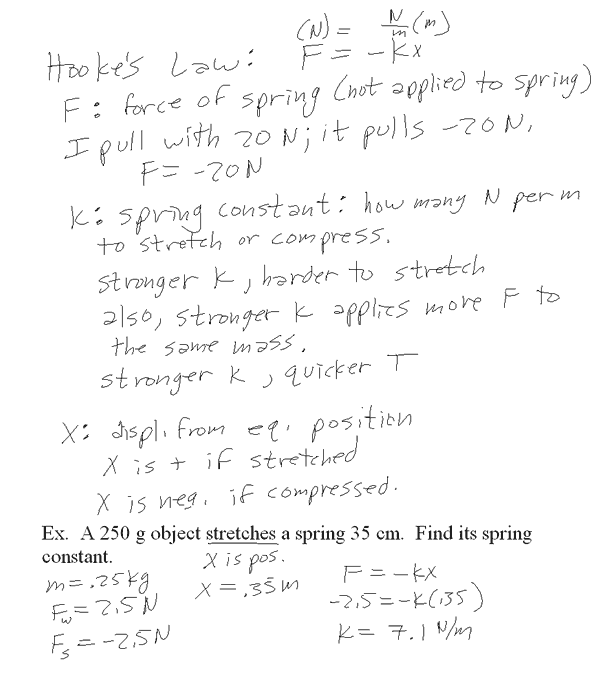 (N) = N/m (m)
Hooke's Law: F = -kx
F: force of spring (not applied to spring)
I pull with 20 N; it pulls -20 N.
F = -20N
k: spring constant: how many N per m
to stretch or compress.
stronger k, harder to stretch
also, stronger k applies more F to
the same mass.
stronger k, quicker T
X: displ. from eq. position
X is + if stretched
X is neg. if compressed.
Ex. A 250 g object stretches a spring 35 cm. Find its spring
constant.
X is pos.
m = .25kg
X = .35m
F = -kx
Fw = 2.5 N
-2.5 = -k(.35)
Fs = -2.5N
k = 7.1 N/m